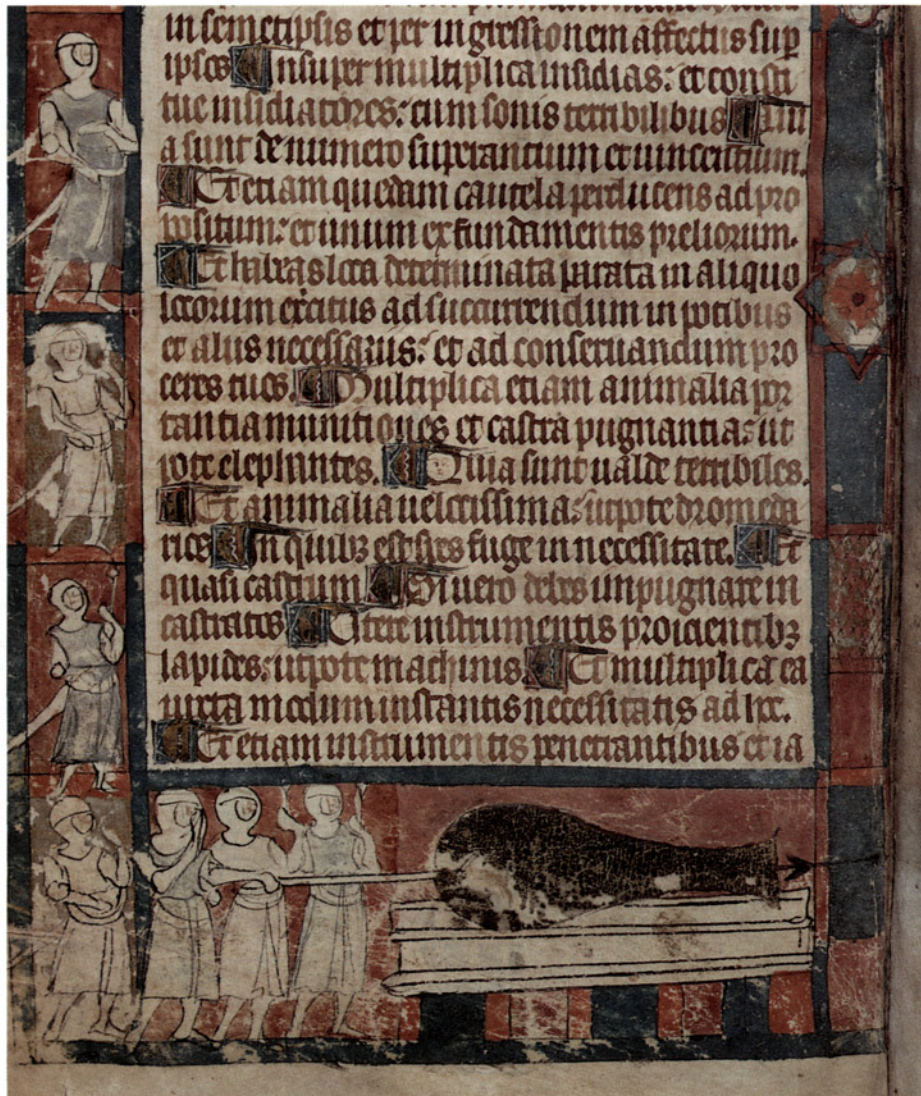 in semetipsis et per ingressionem affectus sup
ipsos Insuper multiplica insidias: et consti
tue insidiatores: cum sonis terribilibus Nam
a sunt de numero superantium et uincentium.
Et etiam quedam cautela perducens ad pro
positum: et unum ex fundamentis preliorum.
Et habeas loca determinata parata in aliquo
locorum excitus ad succurrendum in potibus
et aliis necessariis: et ad conseruandum pro
ceres tuos. Multiplica etiam animalia por
tantia munitiones et castra pugnantia: ut
pote elephantes. Quia sunt ualde terribiles.
Et animalia uelocissima: utpote dromeda
rios In quibz est spes fuge in necessitate. Et
quasi castrum Si uero debes impugnare in
castratos Utere instrumentis proicientibz
lapides: utpote machinis Et multiplica ea
iuxta modum instantis necessitatis ad hoc.
Et etiam instrumentis penetrantibus et ia